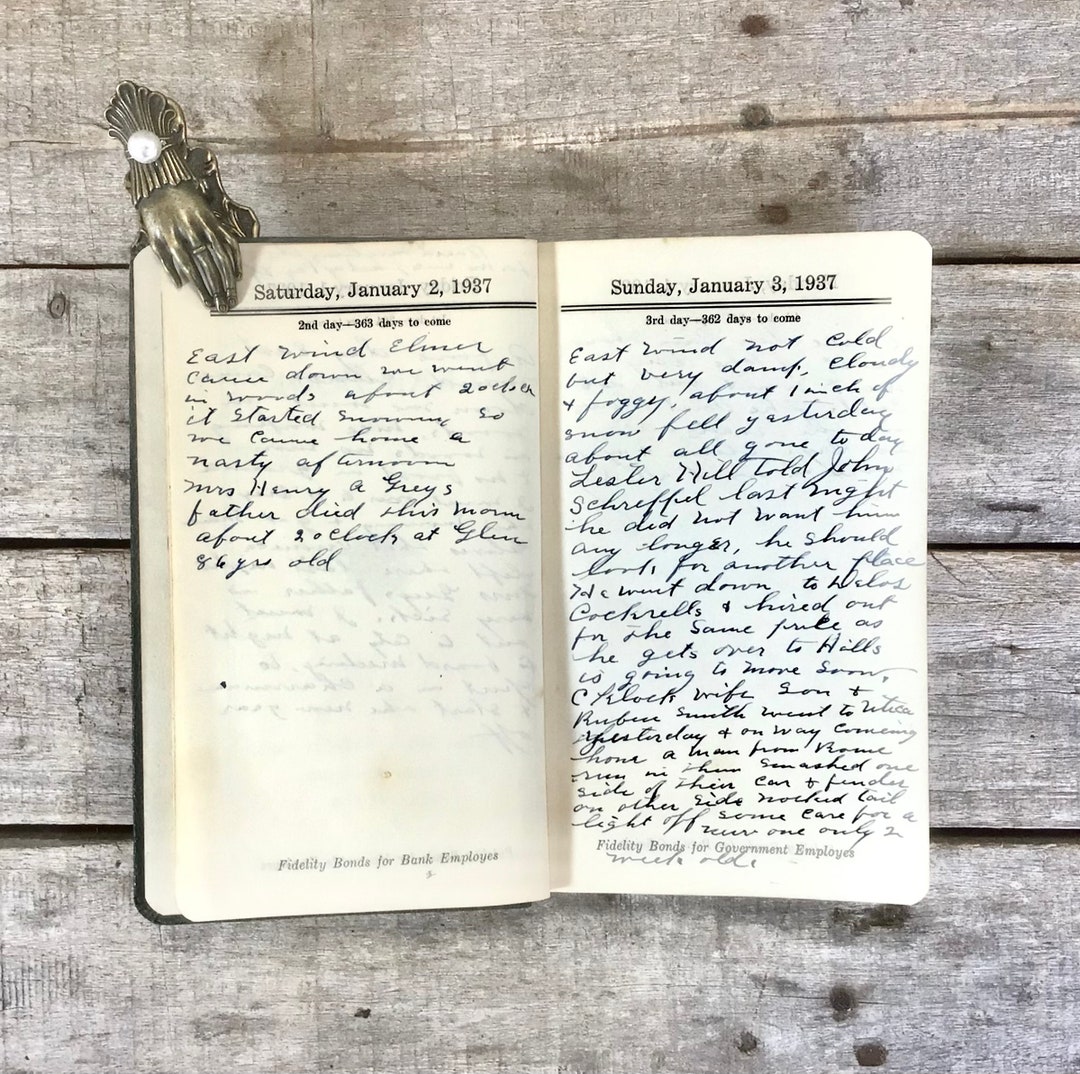 Saturday, January 2, 1937
2nd day—363 days to come
East wind Elmer
came down we went
in woods about 2 oclock
it started snowing so
we came home a
nasty afternoon
Mrs Henry A Greys
father died this morn
about 2 oclock at Glen
86 yrs old
Fidelity Bonds for Bank Employes
Sunday, January 3, 1937
3rd day—362 days to come
East wind not cold
but very damp, cloudy
& foggy, about 1 inch of
snow fell yesterday
about all gone today
Lesler Hill told John
Schreffel last night
he did not want him
any longer, he should
look for another place
He went down to Delos
Cockrells & hired out
for the same price as
he gets over to Hills
is going to move soon,
C Klock wife son &
Ruben Smith went to Utica
yesterday & on way comeing
home a man from Rome
run in them smashed one
side of their car & fender
on other side nocked tail
light off some care for a
new one only 2
Fidelity Bonds for Government Employes
week old.